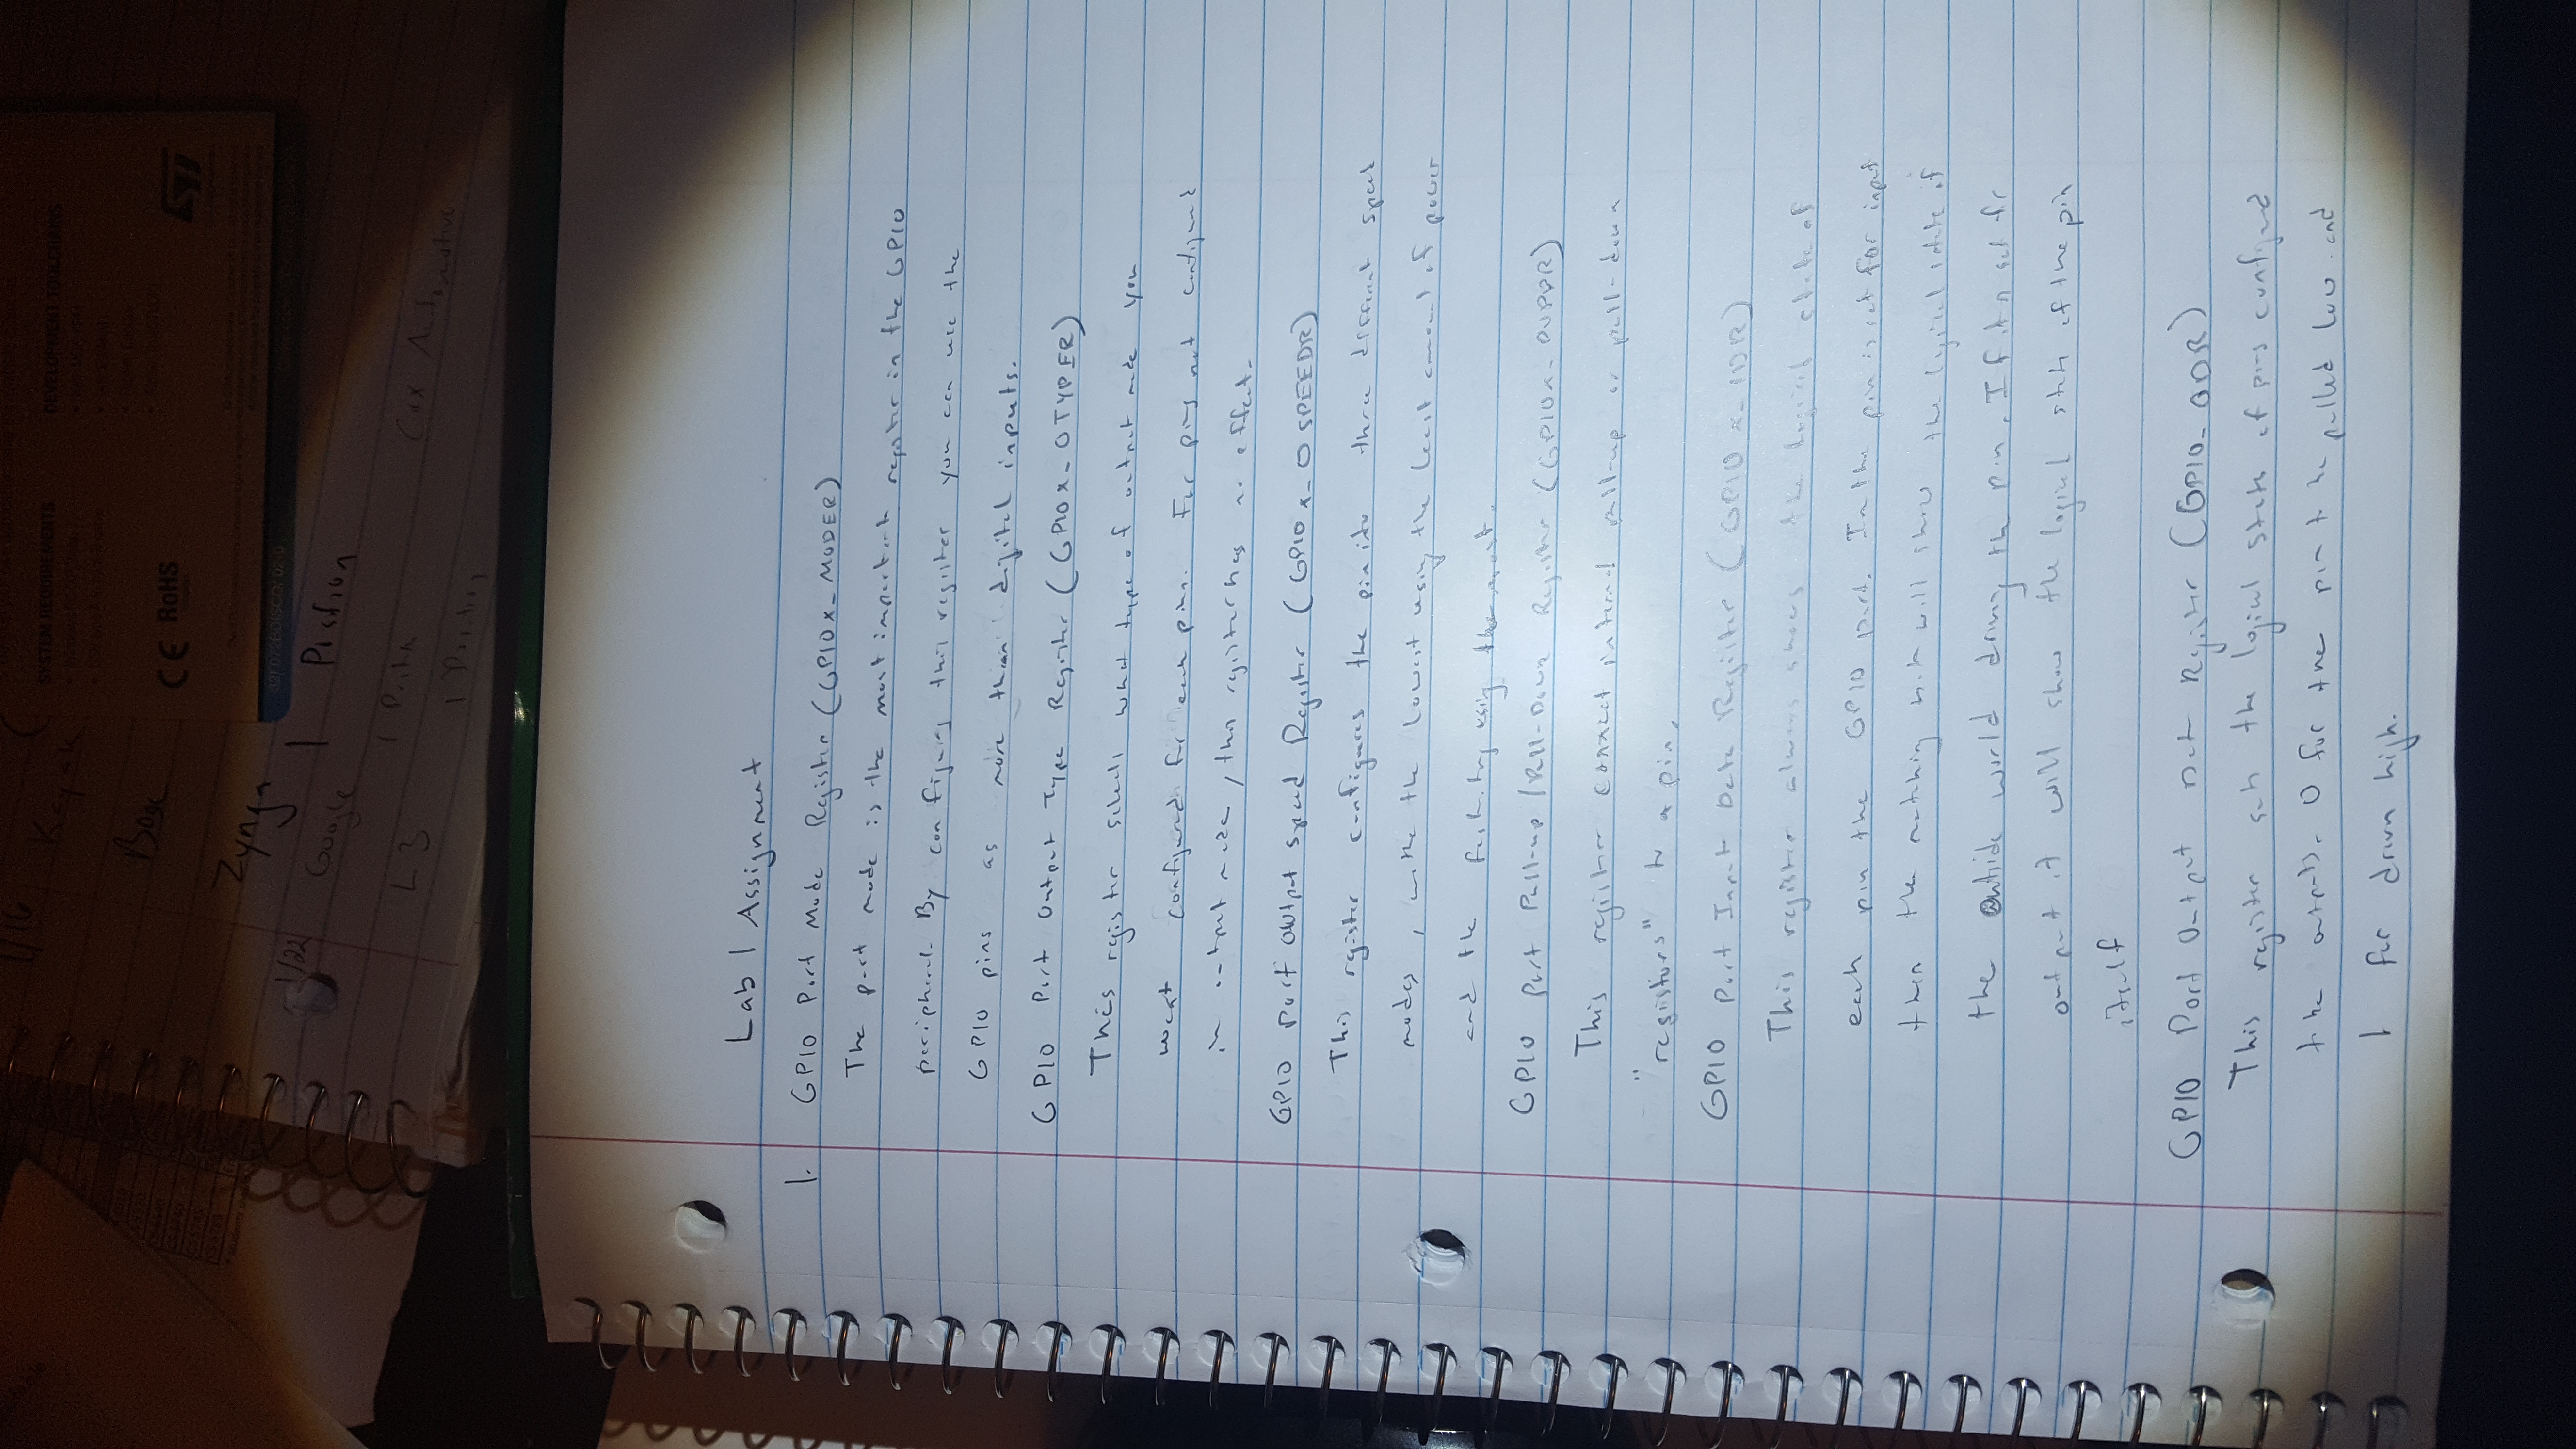 1/16
Kayak
SYSTEM REQUIREMENTS
DEVELOPMENT TOOLCHAINS
Bose
CE RoHS
ST
Zynga
32F072BDISCO/ 02-0
1/22
Google
1 Position
L3
Cox Automotive
Lab 1 Assignment
1. GPIO Port Mode Register (GPIOx_MODER)
The port mode is the most important register in the GPIO
peripheral. By configuring this register you can use the
GPIO pins as more than digital inputs.
GPIO Port Output Type Register (GPIOx_OTYPER)
This register selects what type of output mode you
want configured for each pin. For pins not configured
in output mode, this register has no effect.
GPIO Port Output Speed Register (GPIOx_OSPEEDR)
This register configures the pin into three different speed
modes, with the lowest using the least amount of power
and the using the most.
GPIO Port Pull-up/Pull-Down Register (GPIOx_PUPDR)
This register connect internal pull-up or pull-down
"registors" to a pin.
GPIO Port Input Data Register (GPIOx_IDR)
This register always shows the logical state of
each pin the GPIO port. In the pin is set for input
then the matching will show the logical state of
the outside world driving the pin. If it is set for
output it will show the logical state of the pin
itself
GPIO Port Output Data Register (GPIO_ODR)
This register sets the logical state of pins configured
to be outputs. 0 for the pin to be pulled low and
1 for driven high.